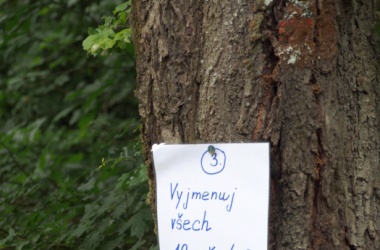 3.
Vyjmenuj
všech